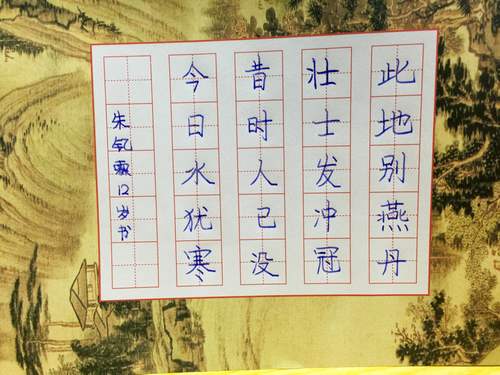 此地别燕丹
壮士发冲冠
昔时人已没
今日水犹寒
朱 12岁书